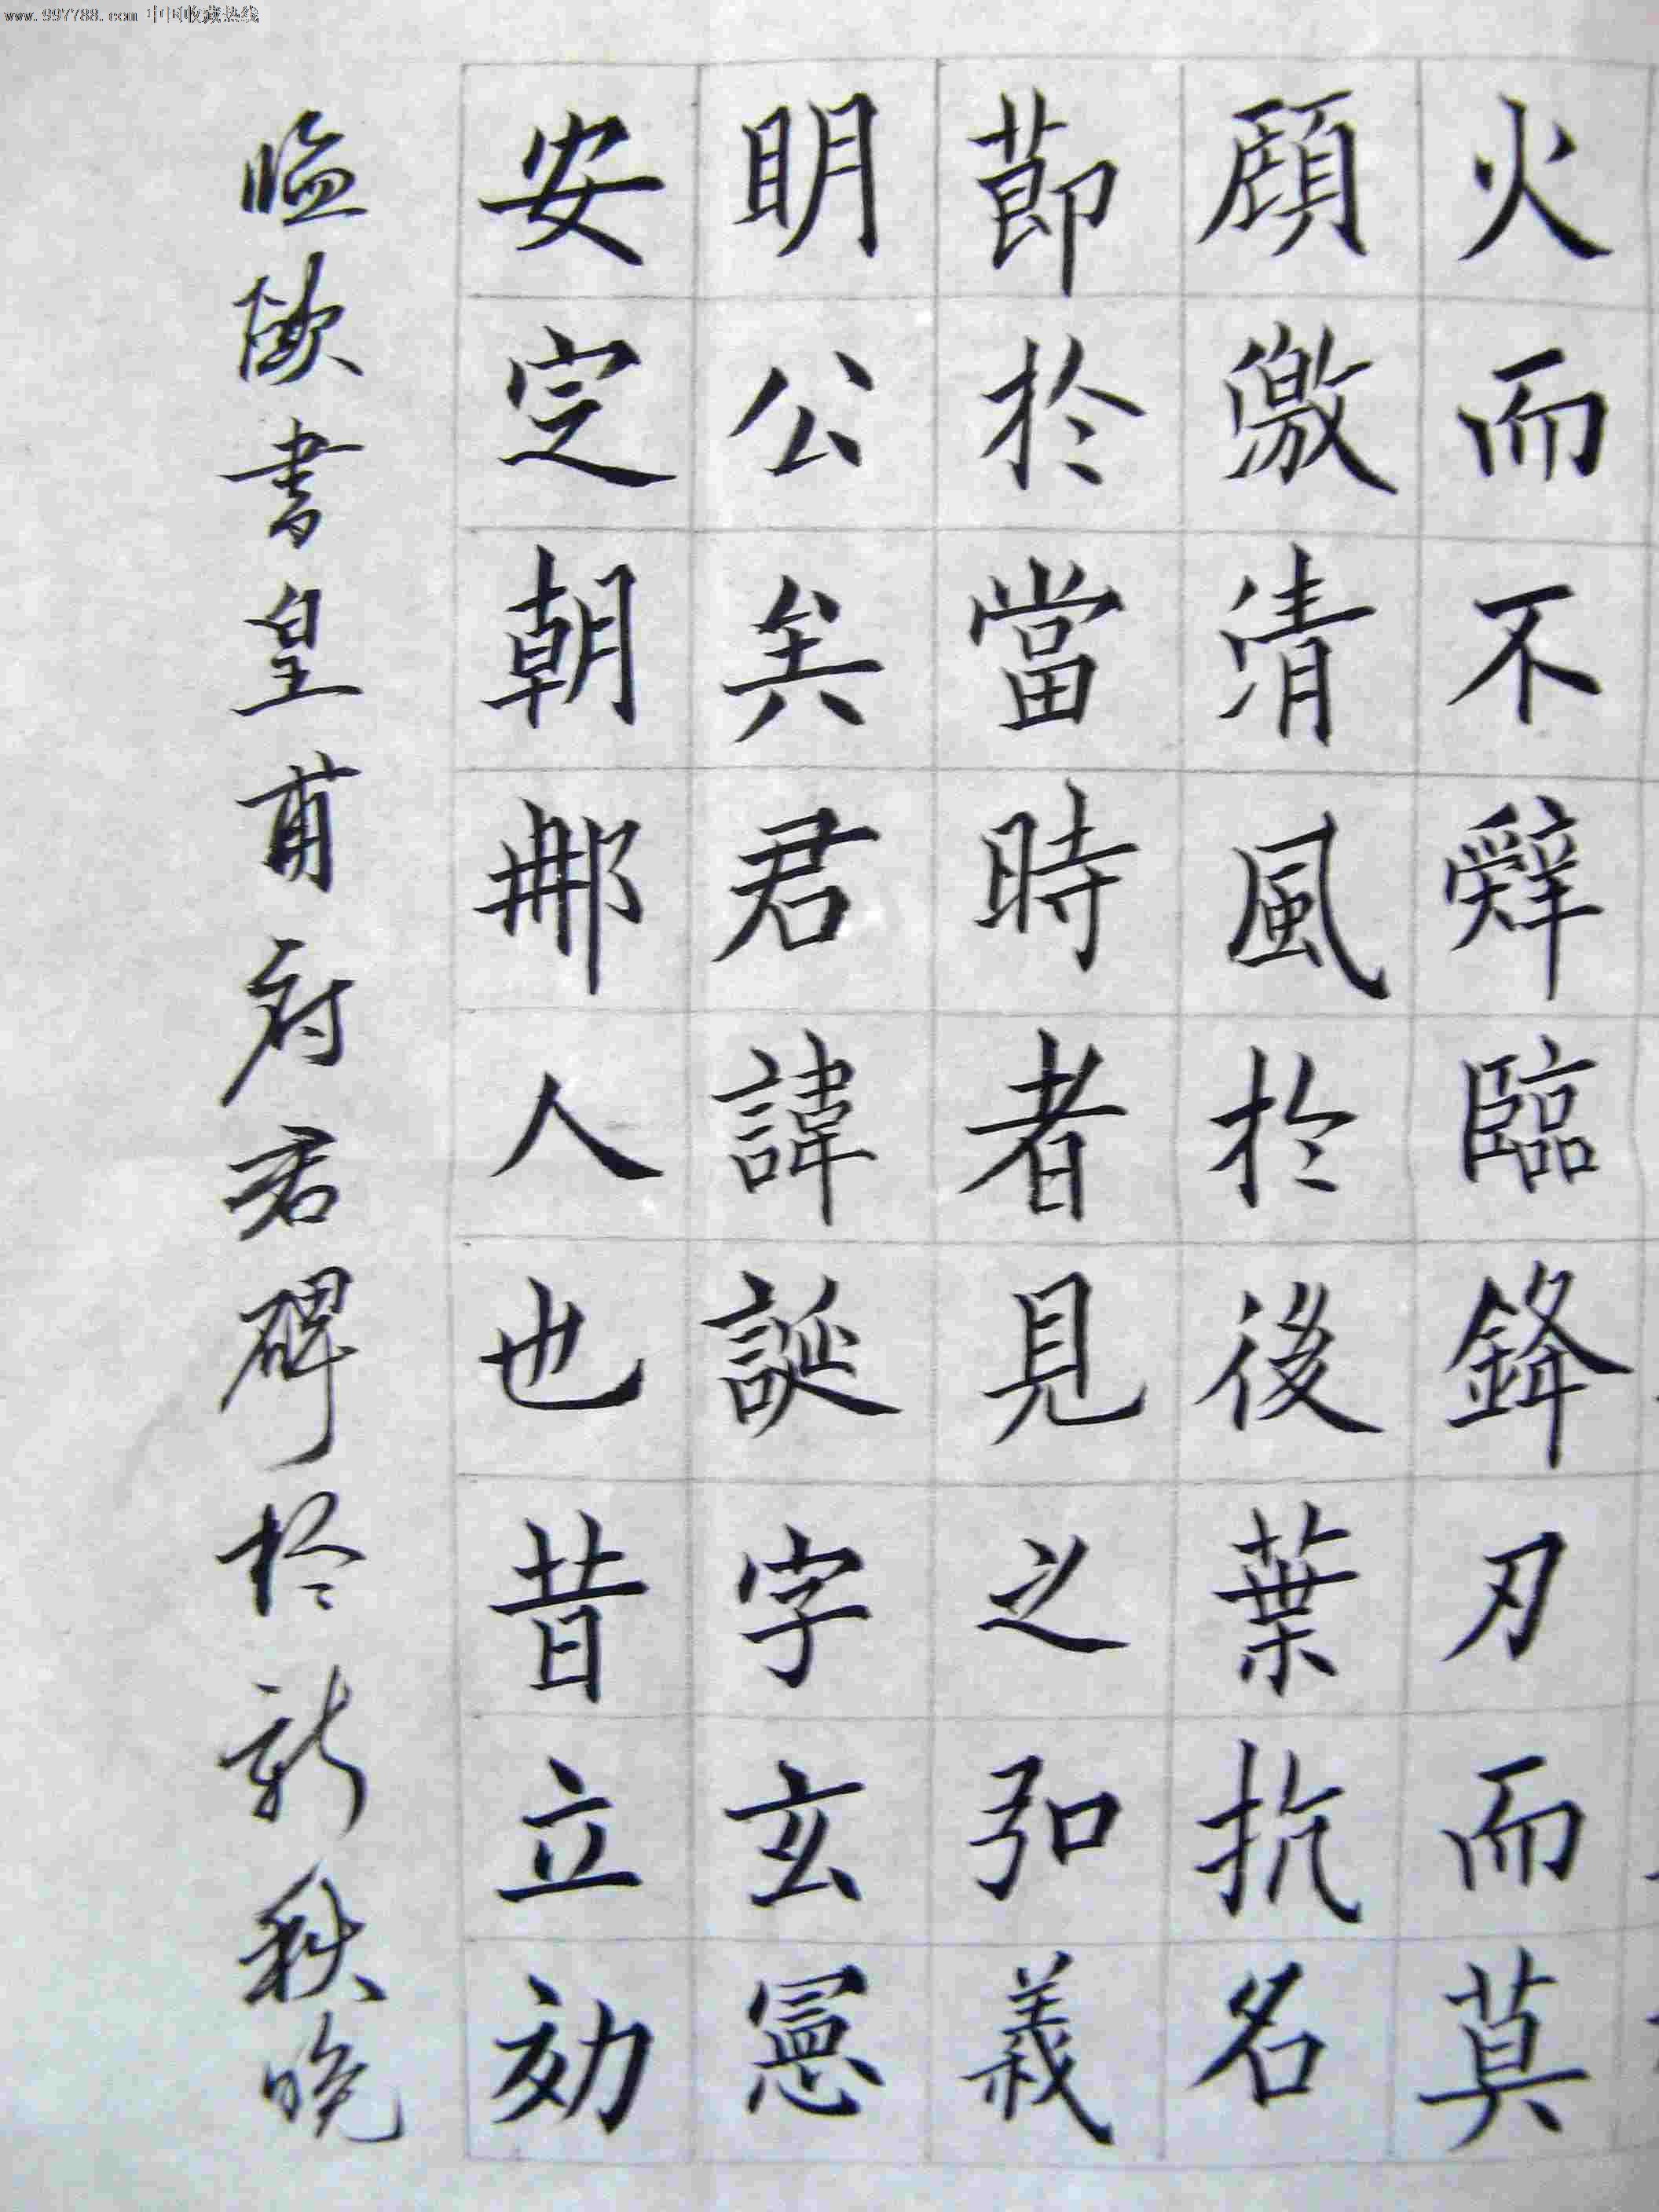 www.997788.com 中国收藏热线
火而不辤臨鋒刃而莫
頋激清風於後葉抗名
莭於當時者見之弘義
明公矣君諱誕字玄憲
安定朝那人也昔立効
臨歐書皇甫府君碑於新秋晚